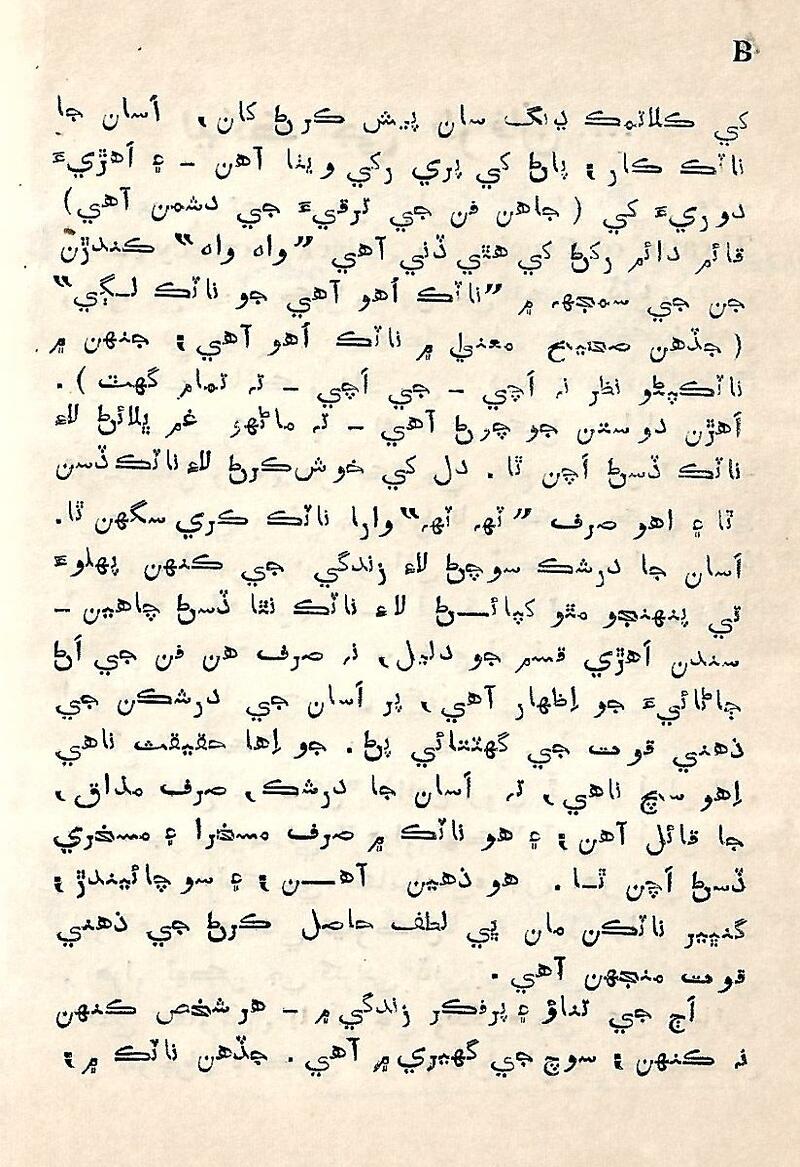 B
کي ڪلاتمڪ ڍنگ سان پيش ڪرڻ کان، اَسان جا
ناٽڪ ڪار؛ پاڻ کي پري رکي ويٺا آهن - ۽ اَهڙيءَ
دوريءَ کي ( جاهن فن جي ترقيءَ جي دشمن آهي)
قائم دائم رکڻ کي هٿي ڏني آهي ”واه واه“ ڪندڙن
جن جي سمجهہ ۾ ”ناٽڪ اُهو آهي جو ناٽڪ لـڳي“
( جڏهن صحيح معنيٰ ۾ ناٽڪ اُهو آهي؛ جنهن ۾
ناٽڪپڻو نظر نہ اَچي - جي اَچي - تہ تمام گهٽ ).
اَهڙن دوستن جو چوڻ آهي - تہ ماڻهو غم ڀلائڻ لاءِ
ناٽڪ ڏسڻ اَچن ٿا. دل کي خوش ڪرڻ لاءِ ناٽڪ ڏسن
ٿا ۽ اهو صرف ”ٽهہ ٽهہ“ وارا ناٽڪ ڪري سگهن ٿا.
اَسان جا درشڪ سوچڻ لاءِ زندگي جي ڪنهن پهلوءَ
تي پنهنجو مٿو کپائـــڻ لاءِ ناٽڪ نٿا ڏسڻ چاهين -
سندن اَهڙي قسم جو دليل، نہ صرف هن فن جي اَڻ
ڄاڻائيءَ جو اِظهار آهي، پر اَسان جي درشڪن جي
ذهني قوت جي گهٽتائي پڻ. جو اِها حقيقت ناهي
اِهو سچ ناهي، تہ اَسان جا درشڪ، صرف مذاق،
جا قائل آهن؛ ۽ هو ناٽڪ ۾ صرف مسخرا ۽ مسخري
ڏسڻ اَچن ٿـا. هو ذهين آهـــن؛ ۽ سوچائيندڙ؛
گنڀير ناٽڪن مان ڀي لطف حاصل ڪرڻ جي ذهني
قوت منجهن آهي.
اَڄ جي تناؤ ۽ پرفڪر زندگي ۾ - هر شخص ڪنهن
نہ ڪنهن؛ سوچ جي گهيري ۾ آهي. جڏهن ناٽڪ ۾؛